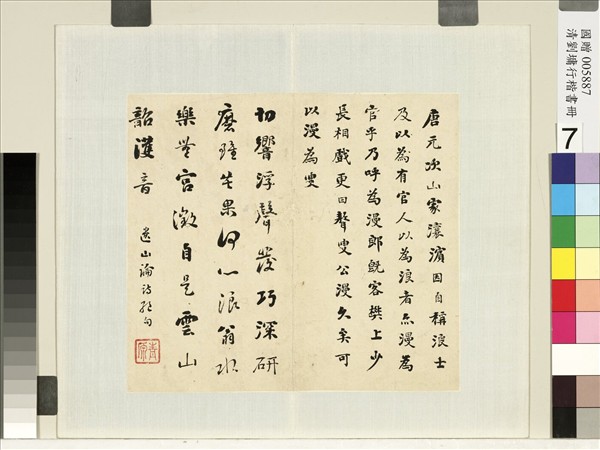 國贈 005887
清劉墉行楷書冊
7
唐元次山家瀼濱因自稱浪士
及以為有官人以為浪者亦漫為
官乎乃呼為漫郎既客樊上少
長相戲更曰聱叟公漫久矣可
以漫為叟
切響浮聲發巧深研
磨雖苦果何心浪翁水
樂無宮徵自是雲山
韶濩音
遺山論詩絕句